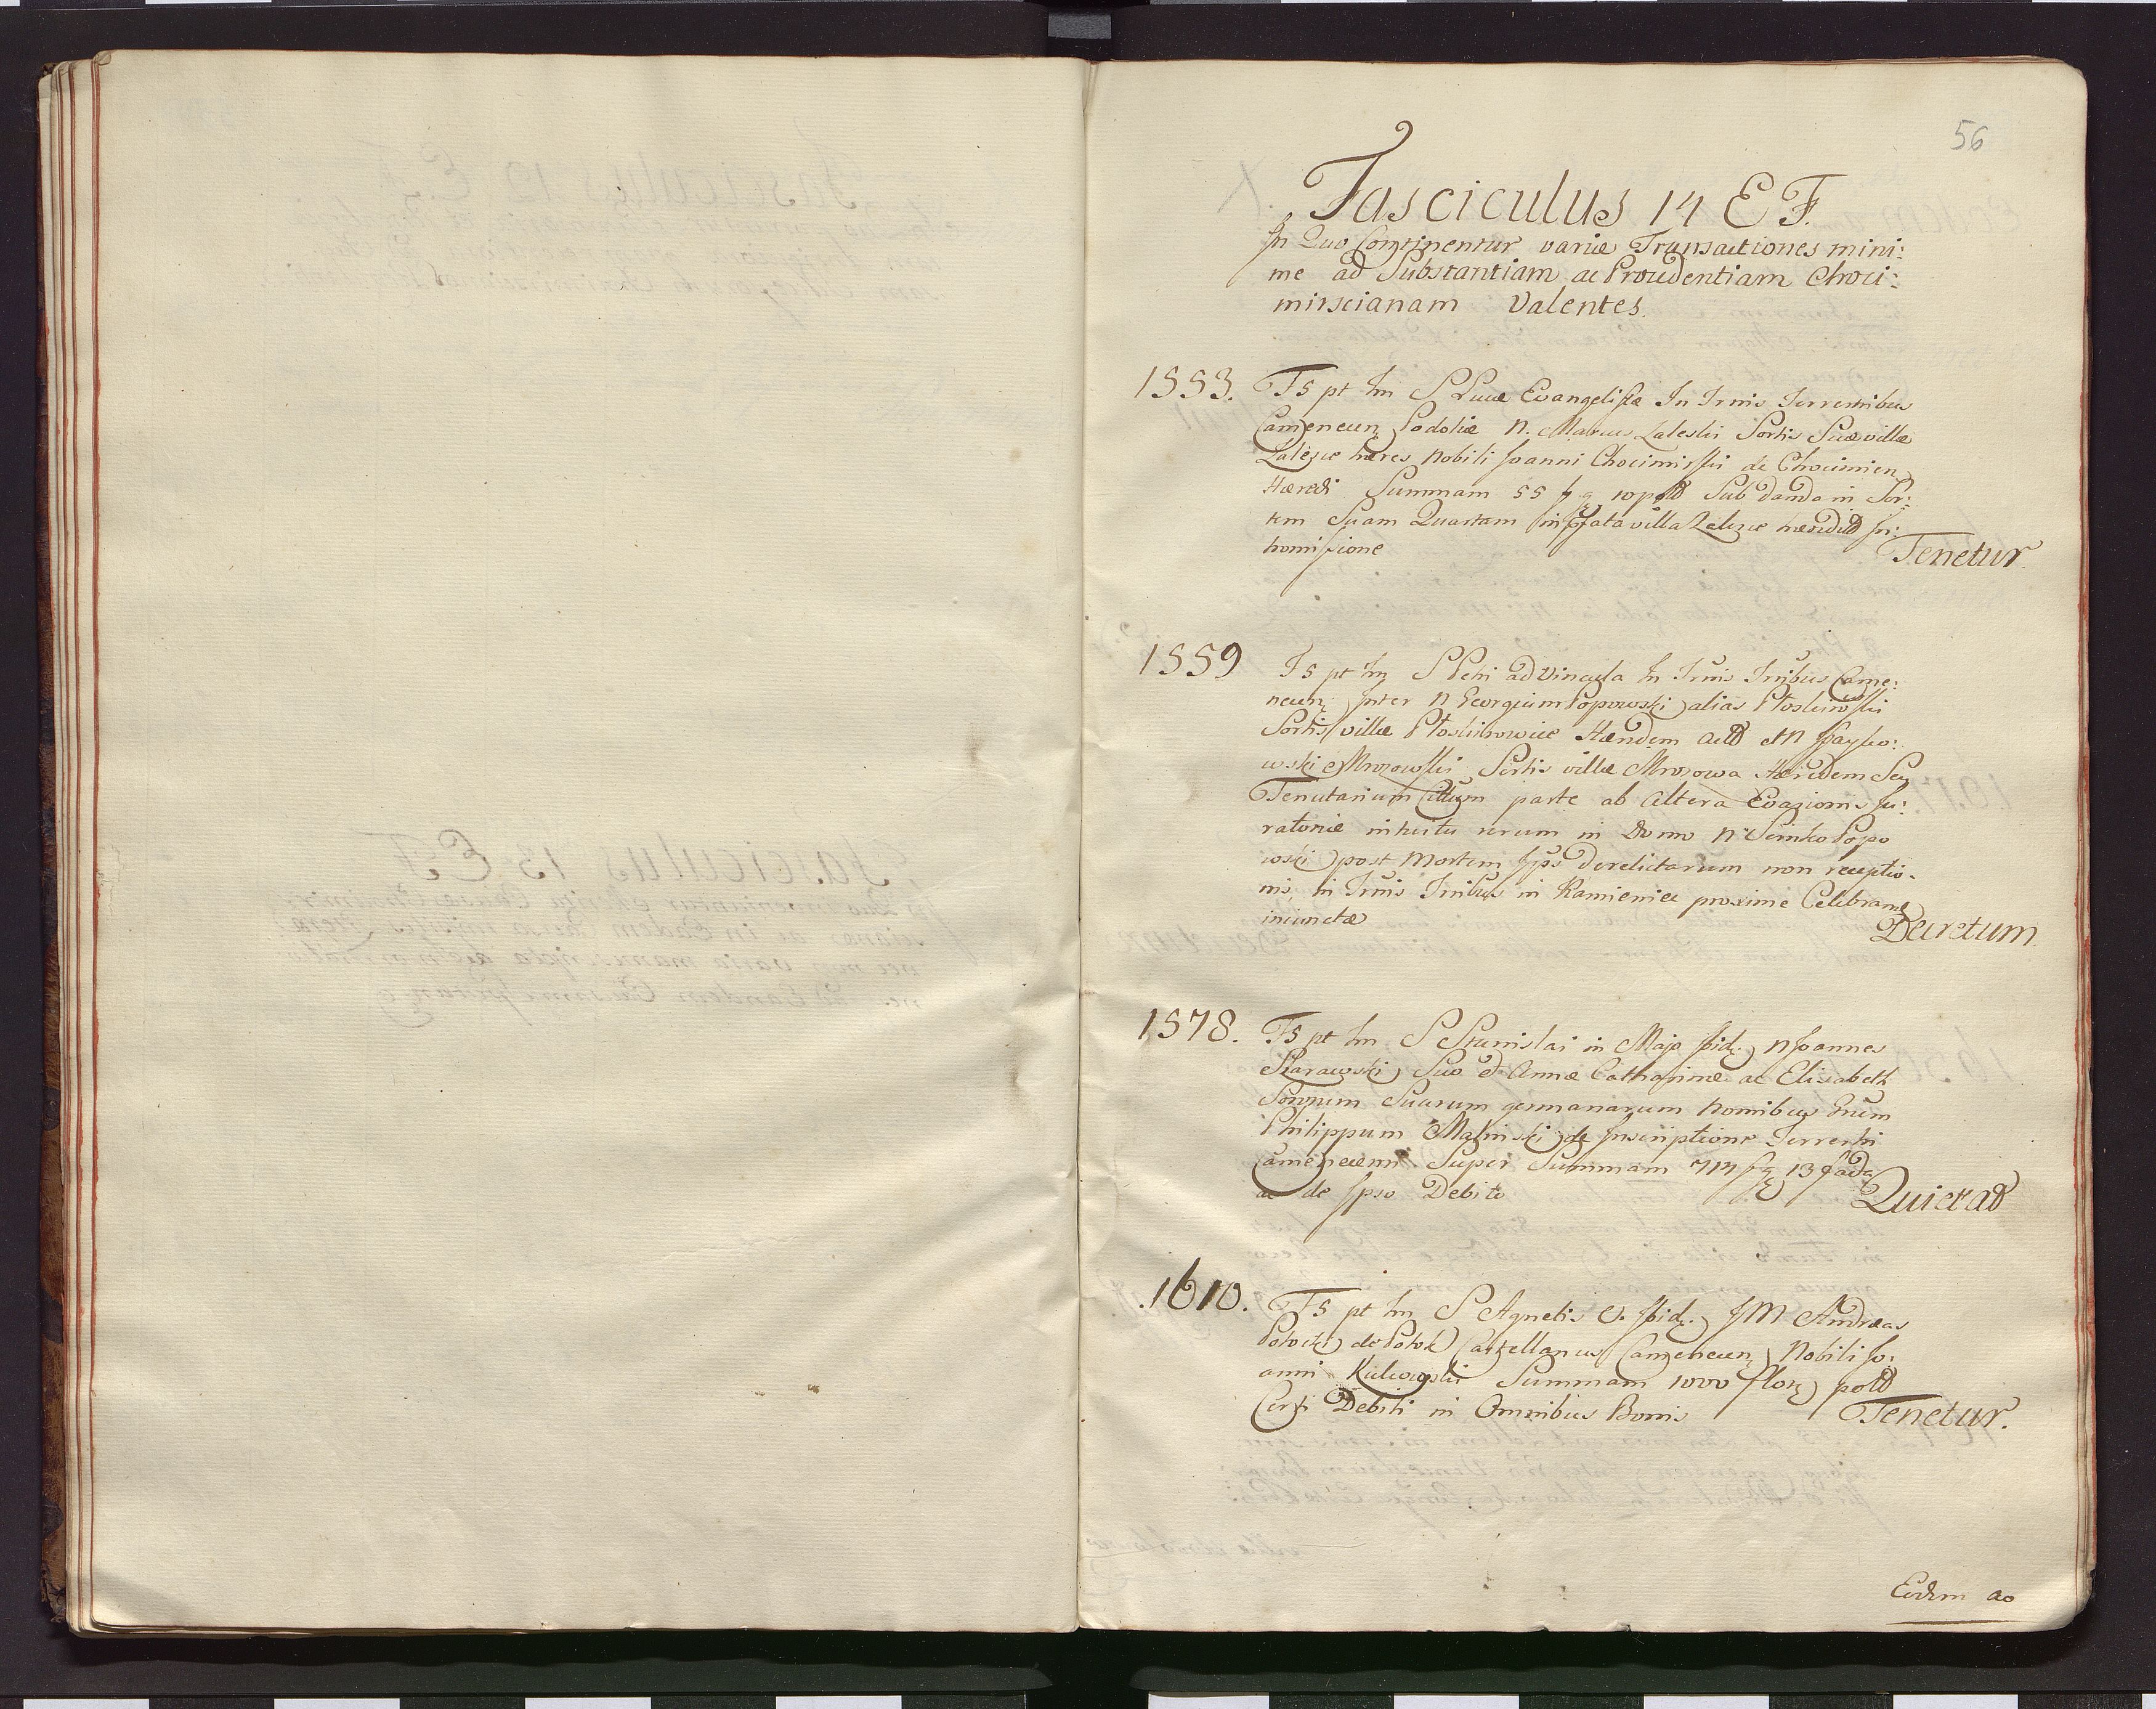 56
Fasciculus 14 E F.
In Quo Continentur variæ Transactiones mini:
me ad Substantiam ac Providentiam Choci:
mirscianam Valentes.
1553. Fs pt Im S Lucæ Evangelistæ In Trnis Terrestribus
Camenecen Podoliæ N. Marcus Zaleski Sortis Suæ villæ
Zalezce hæres Nobili Joanni Chocimirski de Chocimien
Hæredi Summam 55 pold Sub danda in Sor:
tem Suam Quartam in villa Zalezce
homissione Tenetur.
1559 Fs pt Im S Petri ad Vincula In Trnis Tribus Came:
necen Inter N Georgium Popowski alias Ploskirowski
Sortis villæ Ploskirowice Hærdem et N
wski Mrozowski Sortis villæ Mrozowa Hæredem Seu
Tenutarium parte ab altera Evasionis Ju:
ratoriæ intuitu rerum in Domo N Semko Popo
wski post Mortem Ips Derelictarum non receptio:
nis, in Trnis Tribus in Kamieniec proxime Celebran
iniunctæ Decretum.
1578. Fs pt Im S Stanislai in Majo Ibid. N Joannes
Skarawski Suo et Annæ Catharinæ ac Elisabeth
Sororum Suarum germanarum Nomibus Gnum
Philippum Malinski de Inscriptione Terrestri
Camenecenn Super Summam 714 13
ac de Ipso Debito Quietad
1610. Fs pt Im S Agnetis V. Ibid. JM Andreas
Potocki de Potok Castellanus Camenecen Nobili Jo:
anni Summam 1000 flor pold
Certi Debiti in Omnibus Bonis Tenetur.
Eodem ao